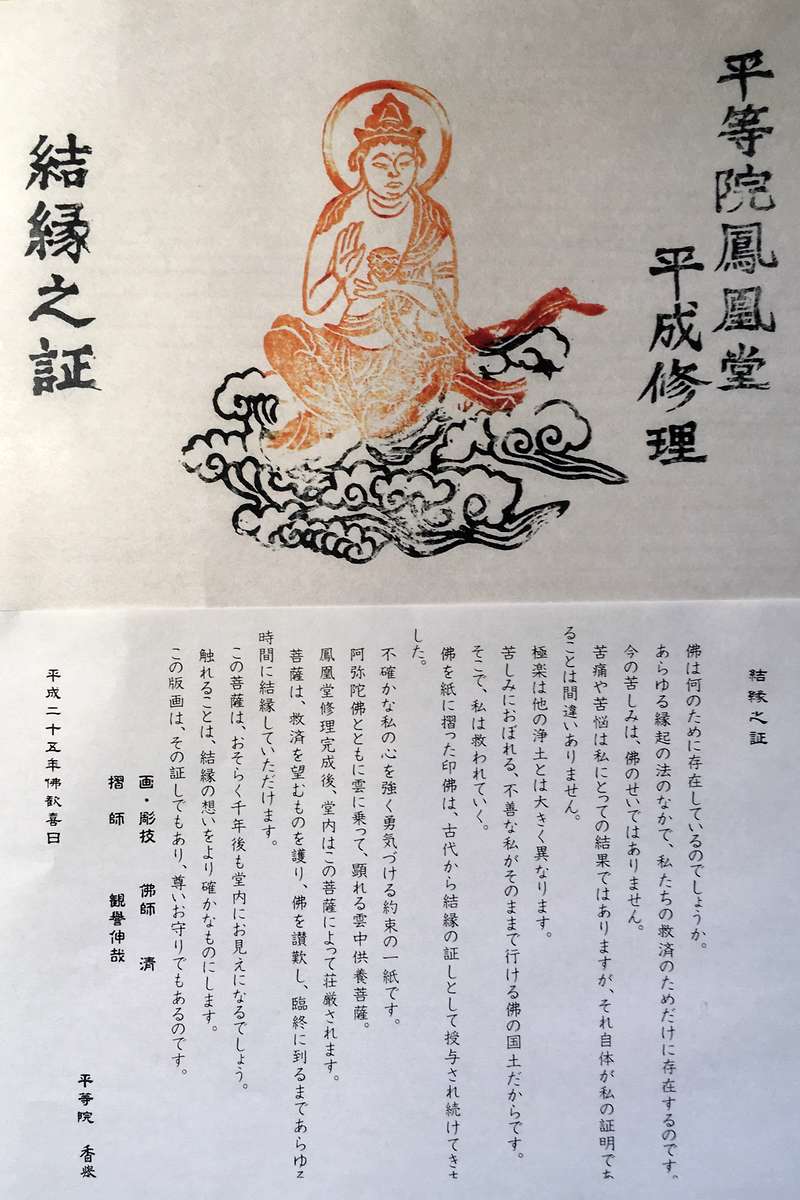 平等院鳳凰堂
平成修理
結縁之証
結縁之証
佛は何のために存在しているのでしょうか。
あらゆる縁起の法のなかで、私たちの救済のためだけに存在するのです。
今の苦しみは、佛のせいではありません。
苦痛や苦悩は私にとっての結果ではありますが、それ自体が私の証明であ
ることは間違いありません。
極楽は他の浄土とは大きく異なります。
苦しみにおぼれる、不善な私がそのままで行ける佛の国土だからです。
そこで、私は救われていく。
佛を紙に摺った印佛は、古代から結縁の証しとして授与され続けてきま
した。
不確かな私の心を強く勇気づける約束の一紙です。
阿弥陀佛とともに雲に乗って、顕れる雲中供養菩薩。
鳳凰堂修理完成後、堂内はこの菩薩によって荘厳されます。
菩薩は、救済を望むものを護り、佛を讃歎し、臨終に到るまであらゆる
時間に結縁していただけます。
この菩薩は、おそらく千年後も堂内にお見えになるでしょう。
触れることは、結縁の想いをより確かなものにします。
この版画は、その証しでもあり、尊いお守りでもあるのです。
画・彫技 佛師 清
摺師 観誉伸哉
平成二十五年佛歓喜日
平等院 香